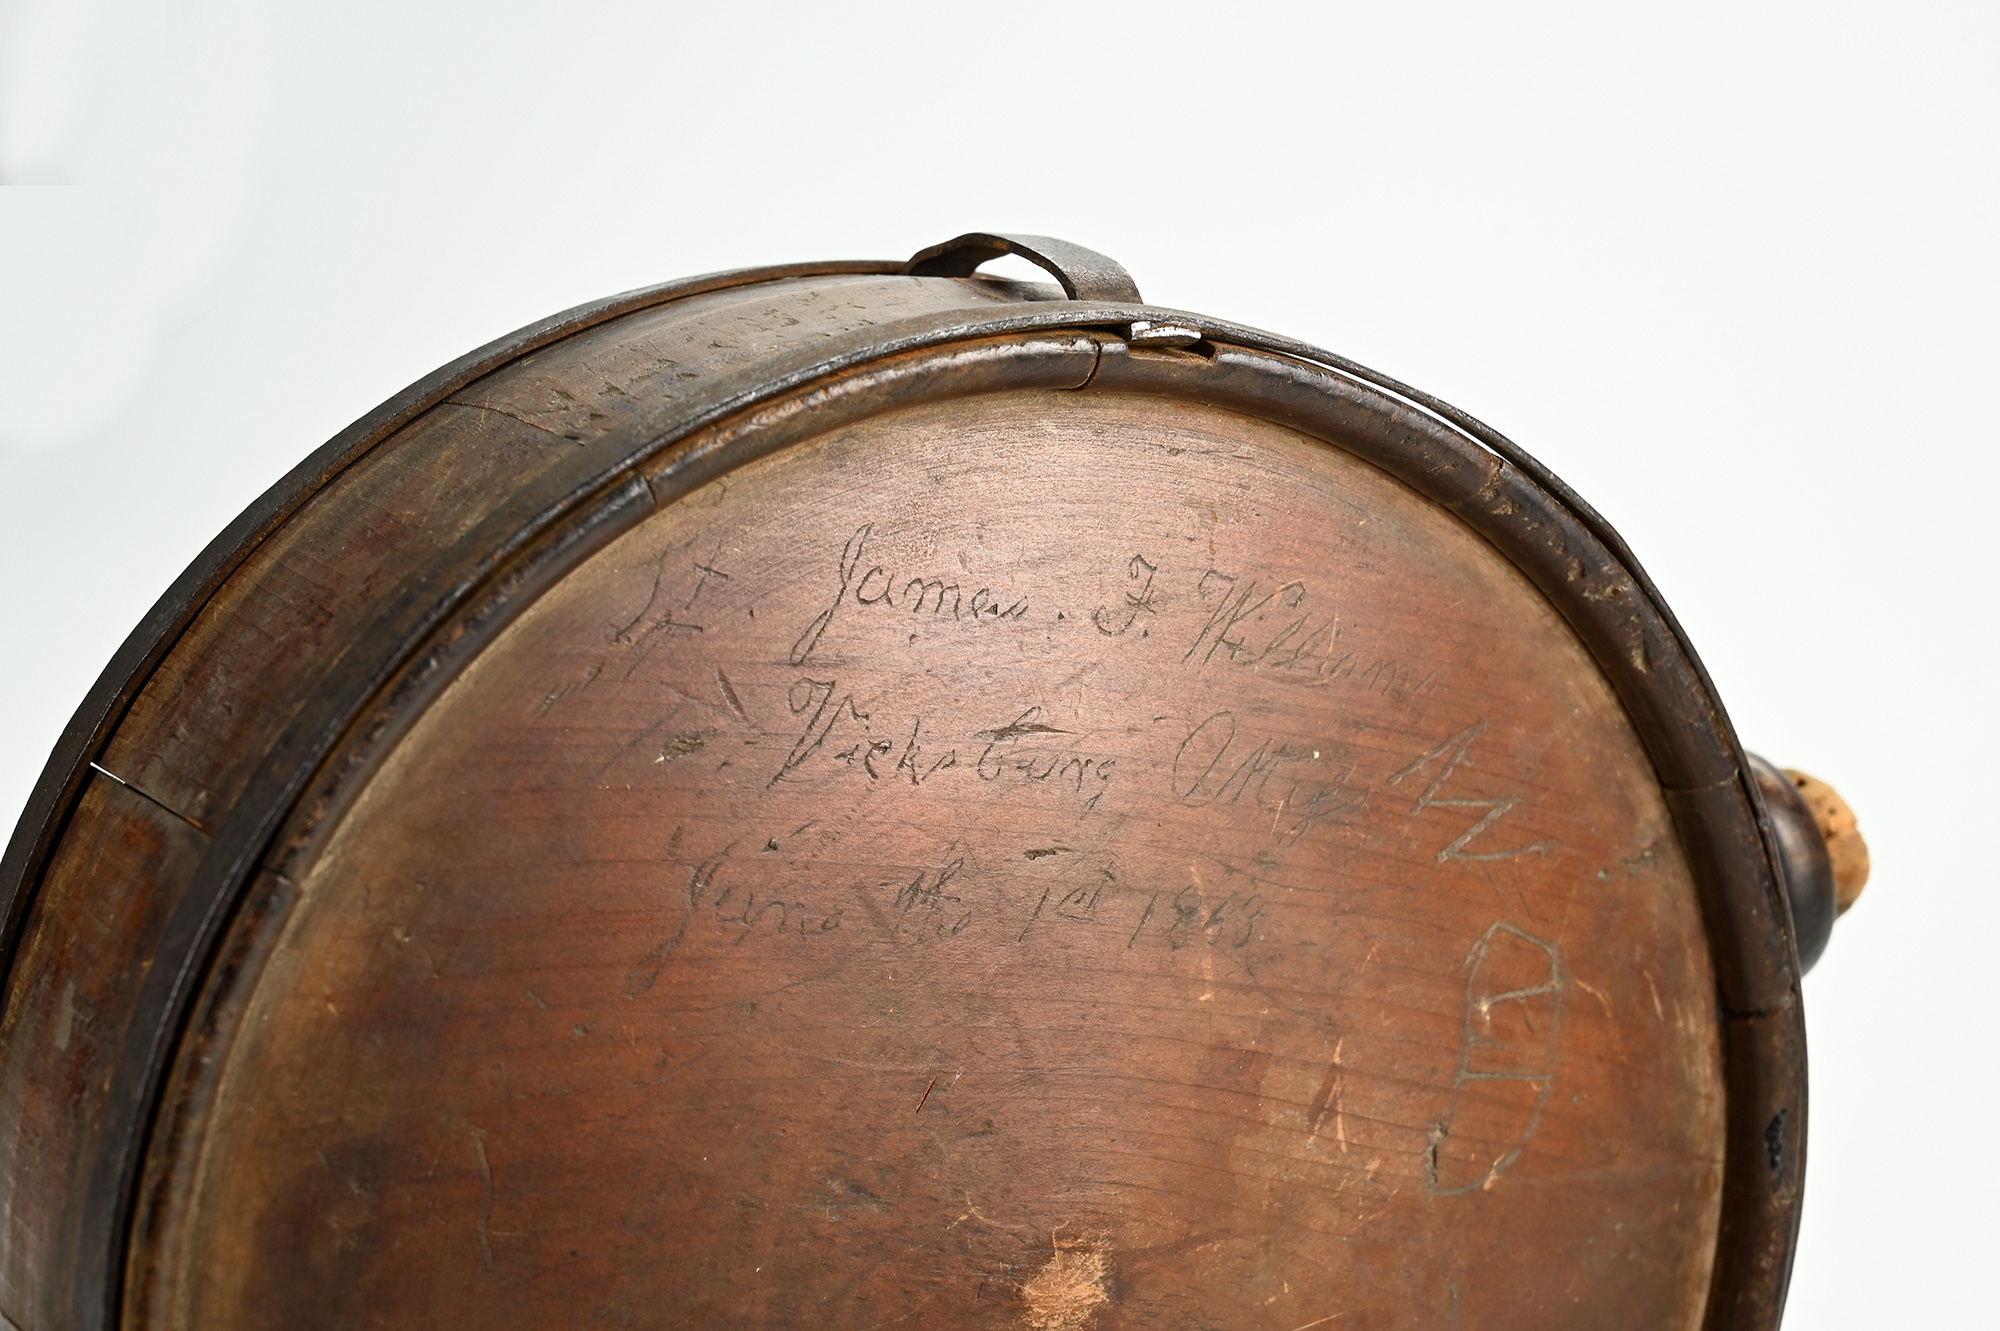 Lt. James. F. Williams
Vicksburg Miss
June the 1st 1863